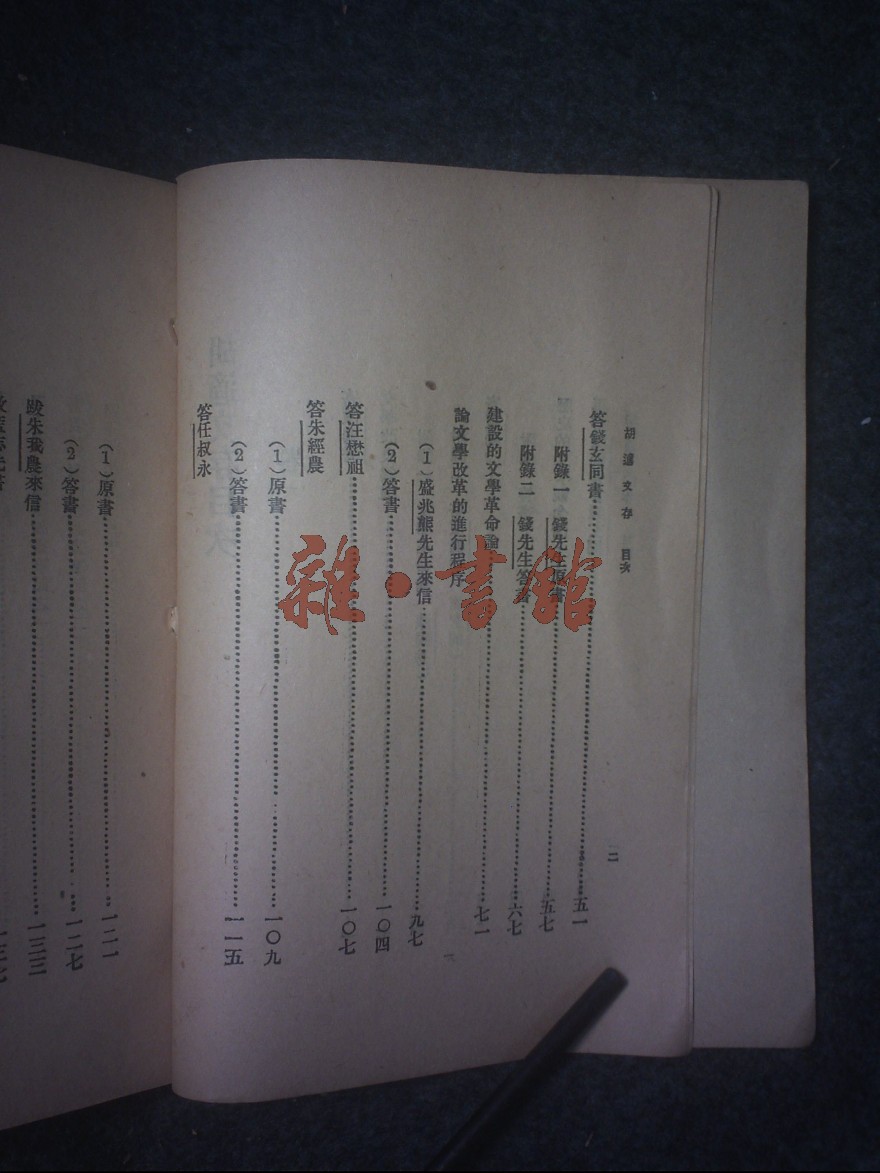 胡適文存 目次
二
答錢玄同書 五一
附錄一 錢先生原書 五七
附錄二 錢先生答書 六七
建設的文學革命論 七一
論文學改革的進行程序
(1)盛兆熊先生來信 九七
(2)答書 一〇四
答汪懋祖 一〇七
答朱經農
(1)原書 一〇九
(2)答書 一一五
答任叔永
(1)原書 一二一
(2)答書 一二七
跋朱我農來信 一三三
雜·書館